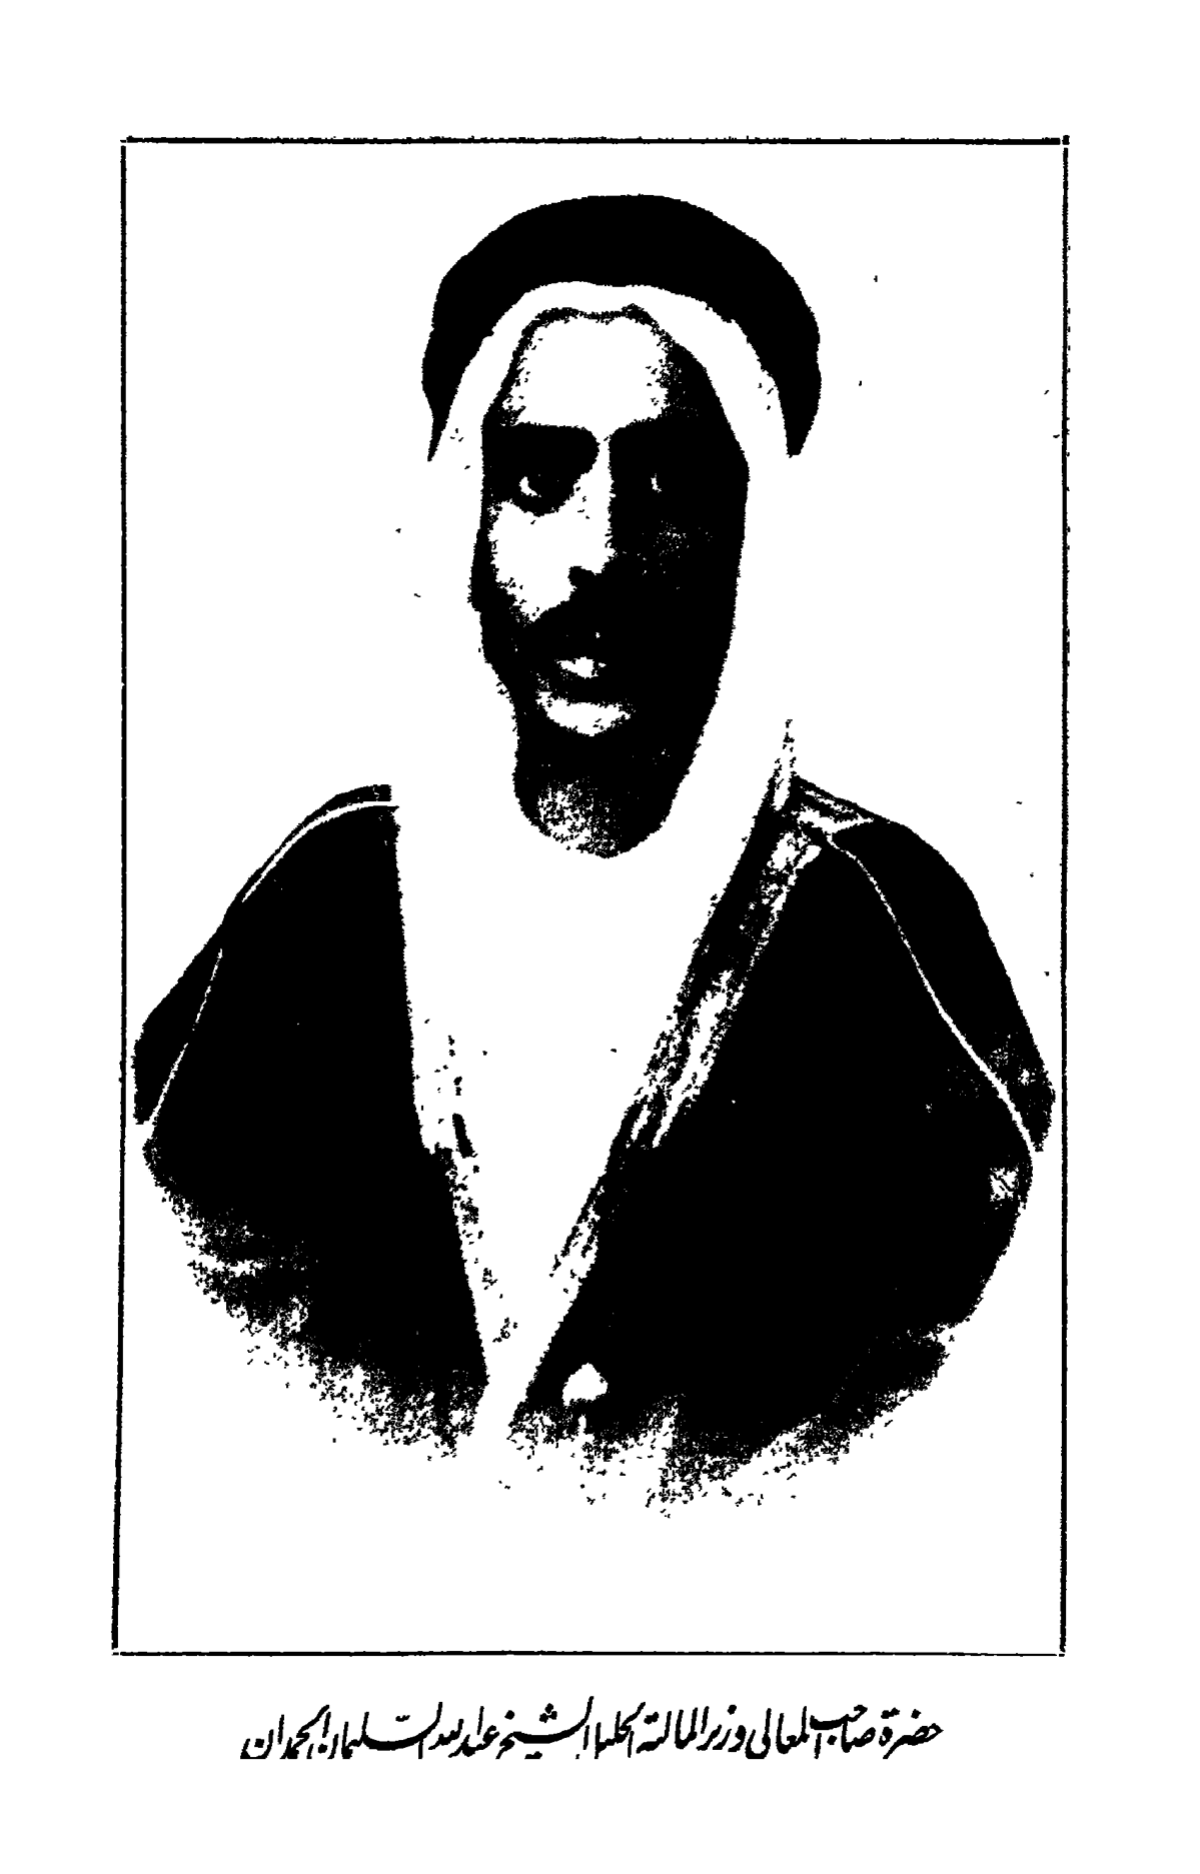 حضرة صاحب المعالي وزير المالية الجليل الشيخ عبد الله السليمان الحمدان